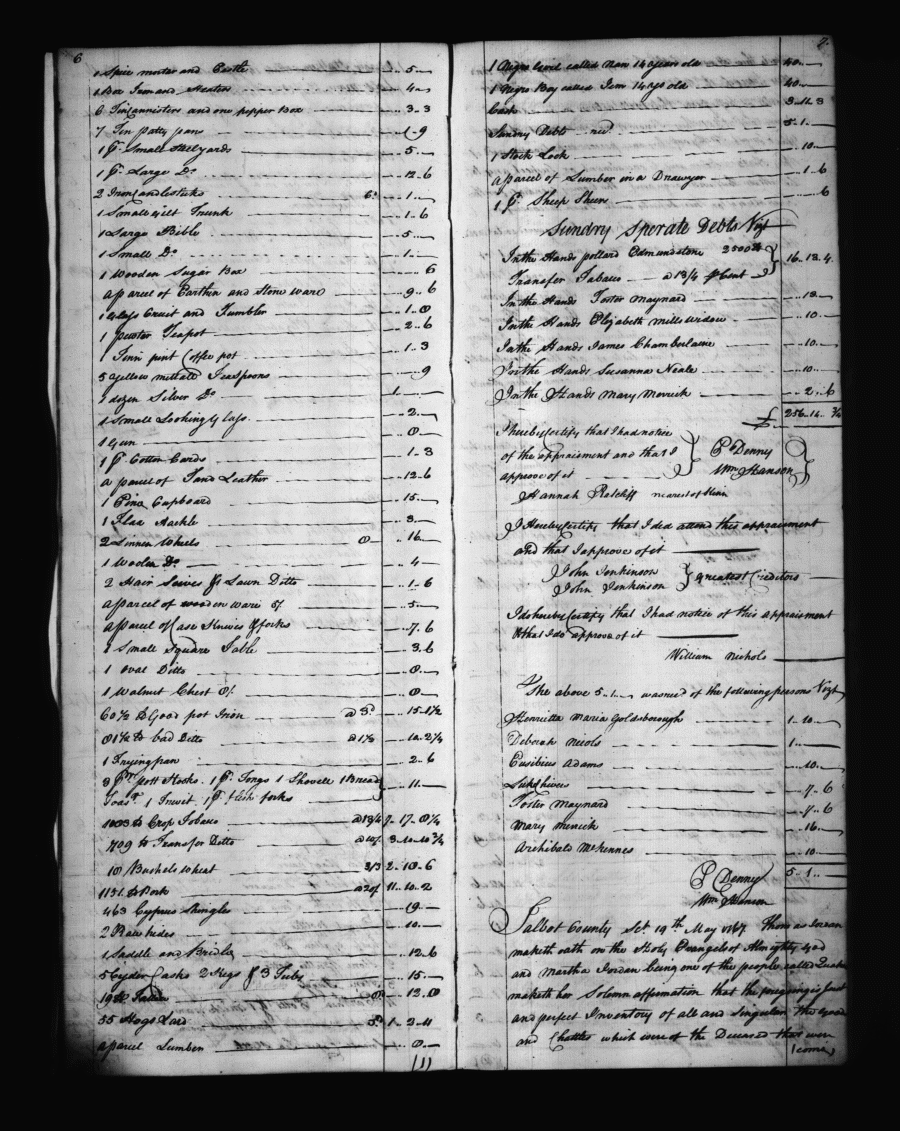 6
1 Spice mortar and Pestle ... 5 ..
1 Box Iron and Heaters .. 4 ..
6 Tin Cannisters and one pepper Box .. 3 .. 3
7 Tin patty pans .. 1 .. 9
1 pr. Small Stilyards .. 5 ..
1 pr. Large Do. .. 12 .. 6
2 Iron Candlesticks 6d. .. 1 ..
1 Small gilt Trunk .. 1 .. 6
1 Large Bible .. 5 ..
1 Small Do. .. 1 ..
1 Wooden Sugar Box .. 6
a parcel of Earthin and Stone ware .. 9 .. 6
1 Glass Cruit and Tumbler .. 1 .. 8
1 pewter Teapot .. 2 .. 6
1 Tinn pint Coffee pot .. 1 .. 3
5 yellow mettall Teaspoons .. 9
1 dozen Silver Do. 1 ..
1 Small Looking Glass .. 2 ..
1 Gun .. 8 ..
1 pr. Cotton Cards .. 1 .. 3
a parcel of Tand Leather .. 12 .. 6
1 Pine Cupboard .. 15 ..
1 Flax Hackle .. 3 ..
2 Linnen Wheels 8 .. 16 ..
1 Woolen Do. .. 4 ..
2 Hair Seives & 1 Lawn Ditto .. 1 .. 6
a parcel of wooden ware 5/ .. 5 ..
a parcel of Case Knives & forks .. 7 .. 6
1 Small Square Table .. 3 .. 6
1 oval Ditto .. 8 ..
1 Walnut Chest 8/. .. 8 ..
60½ lb Good pot Iron a 3d. .. 15 .. 1½
81½ lb bad Ditto a 1½ .. 10 .. 2¼
1 Fryingpan .. 2 .. 6
3 pr. Pott Hooks. 1 pr. Tongs 1 Shovell 1 Bread
Toasr. 1 Trivit. 1 pr. flesh forks .. 11 ..
lb Crop Tobacco a 13/4 7 .. 17 .. 8½
709 lb Transfer Ditto 3 .. 10 .. 10¾
10 Bushels wheat 2 .. 10 .. 6
1151 lb Pork a 20/ 11 .. 10 .. 2
463 Cyprus Shingles .. 19 ..
2 Raw hides .. 10 ..
1 Saddle and Bridle .. 12 .. 6
5 Cyder Casks 2 Kegs & 3 Tubs .. 15 ..
lb Tallow 8d. .. 12 .. 8
55 Hogs Lard 5d. 1 .. 2 .. 11
a parcel Lumber .. 8 ..
(1)
7.
1 Negro Level called Nan 14 years old 40 ..
1 Negro Boy called Jem 14 yrs old 40 ..
Cash 3 .. 12 .. 3
Sundry Debts recd. 5 .. 1 ..
1 Stock Lock .. 10 ..
a parcel of Lumber in a Drawyer .. 1 .. 6
1 pr. Sheep Sheers .. 6
Sundry Sperate Debts Vizt
In the Hands pollard Edmundstone 2500 lb
Transfer Tobacco a 13/4 pr Cent 16 .. 13 .. 4
In the Hands Foster Maynard .. 13 ..
In the Hands Elizabeth Mills widow .. 10 ..
In the Hands James Chamberlaine .. 10 ..
In the Hands Susanna Neale .. 10 ..
In the Hands Mary Merrick .. 2 .. 6
£ 256 .. 14 ..
I hereby certify that I had notice
of the appraisment and that I
approve of it
P Denny
Wm. Hanson
Hannah Ratcliff nearest of Kin
I Hereby certify that I did attend this appraisment
and that I approve of it
John Jenkinson
John Jenkinson greatest Creditors
I do hereby Certify that I had notice of this appraisment
& that I do approve of it
William Nichols
The above 5 .. 1 .. was recd of the following persons Vizt
Henrietta Maria Goldsborough 1 .. 10 ..
Deborah Nicols 1 ..
Eusibius Adams .. 10 ..
.. 7 .. 6
Foster Maynard .. 7 .. 6
Mary Merrick .. 16 ..
Archibald McKennes .. 10 ..
5 .. 1 ..
P Denny
Wm. Hanson
Talbot County Sct 19th May 1767. Thomas
maketh oath on the Holy Evangels of Almighty God
and Martha Jordan being one of the people called Quakers
maketh her Solemn affirmation that the foregoing is just
and perfect Inventory of all and Singular the Goods
and Chattles which were of the Deceased that were
(come)